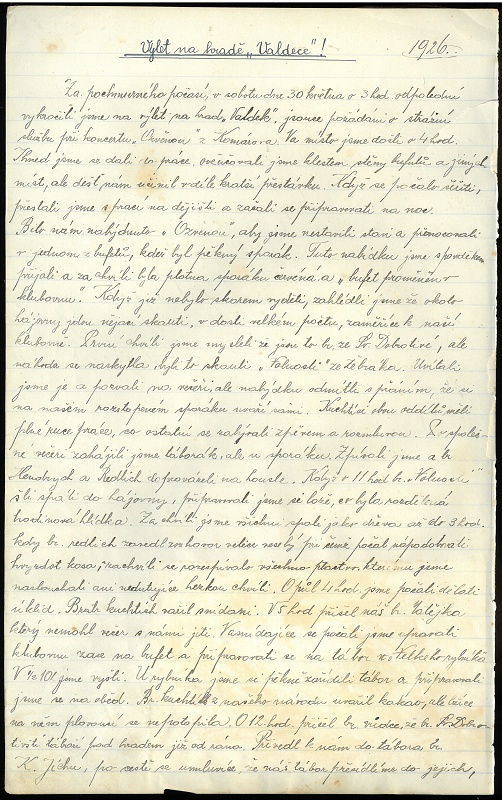 Výlet na hradě „Valdece“! 1926.
Za pochmurného počasí, v sobotu dne 30 května o 3 hod. odpolední
vykročili jsme na výlet na hrad „Valdek“, jsouce požádáni o strážní
službu při koncertu „Ozvěnou“ z Komárova. Na místo jsme došli o 4 hod.
Ihned jsme se dali do práce, ověnčovali jsme klestem stěny bufetů a jiných
míst, ale déšť nám učinil v díle kratší přestávku. Když se počalo šeřiti,
přestali jsme s prací na dějišti a začali se připravovati na noc.
Bylo nám nabídnuto „Ozvěnou“, aby jsme nestavili stan a přenocovali
v jednom z bufetů, kdež byl pěkný sporák. Tuto nabídku jsme s povděkem
přijali a za chvíli byla plotna sporáku červená a „bufet proměněn v
klubovnu“. Když již nebylo skorem viděti, zahlédli jsme že okolo
hájovny jdou nějací skauti, v dosti velkém počtu, zaměříce k naší
klubovně. První chvíli jsme mysleli že jsou to br. ze Sv. Dobrotivé, ale
náhoda se naskytla byli to skauti „Volnosti“ ze Žebráka. Uvítali
jsme je a pozvali na večeři, ale nabídku odmítli s přáním, že si
na našem roztopeném sporáku uvaří sami. Kuchtíci obou oddílů měli
plné ruce práce, co ostatní se zabývali zpěvem a rozmluvou. Po společ-
né večeři zahájili jsme táborák, ale u sporáku. Zpívali jsme a br.
Hendrych a Redlich doprovázeli na housle. Když v 11 hod br. „Volnosti“
šli spáti do hájovny, připravovali jsme si lože, co byla rozdělena
hodinová hlídka. Za chvíli jsme všichni spali jako dřeva až do 3 hod.
kdy br. redlich zasedl velice veselý při čemž počal nápodobovati
hvízdot kosa, začali se rozezpívalo všechno ptactvo, kterému jsme
naslouchali ani nedutajíce hezkou chvíli. O půl 4 hod. jsme počali dělati
úklid. Bratr kuchtík vařil snídani. V 5 hod přišel náš br. Matějka
který nemohl večer s námi jíti. Nasnídajíce se počali jsme upravovati
klubovnu zase na bufet a připravovati se na tábor u Velkého rybníka
V ½ 10 h jsme vyšli. U rybníka jsme si pěkně zařídili tábor a připravovali
jsme se na oběd. Br. kuchtík z našeho národu uvařil kakao, ale lžíce
na něm plovoucí se nepotopila. O 12 hod. přišel br. vůdce, že br. Sv. Dobro-
tivští táboří pod hradem již od rána. Přivedl k nám do tábora br.
K. Jíchu, po cestě se umluvíce, že náš tábor přesídlíme do jejich,